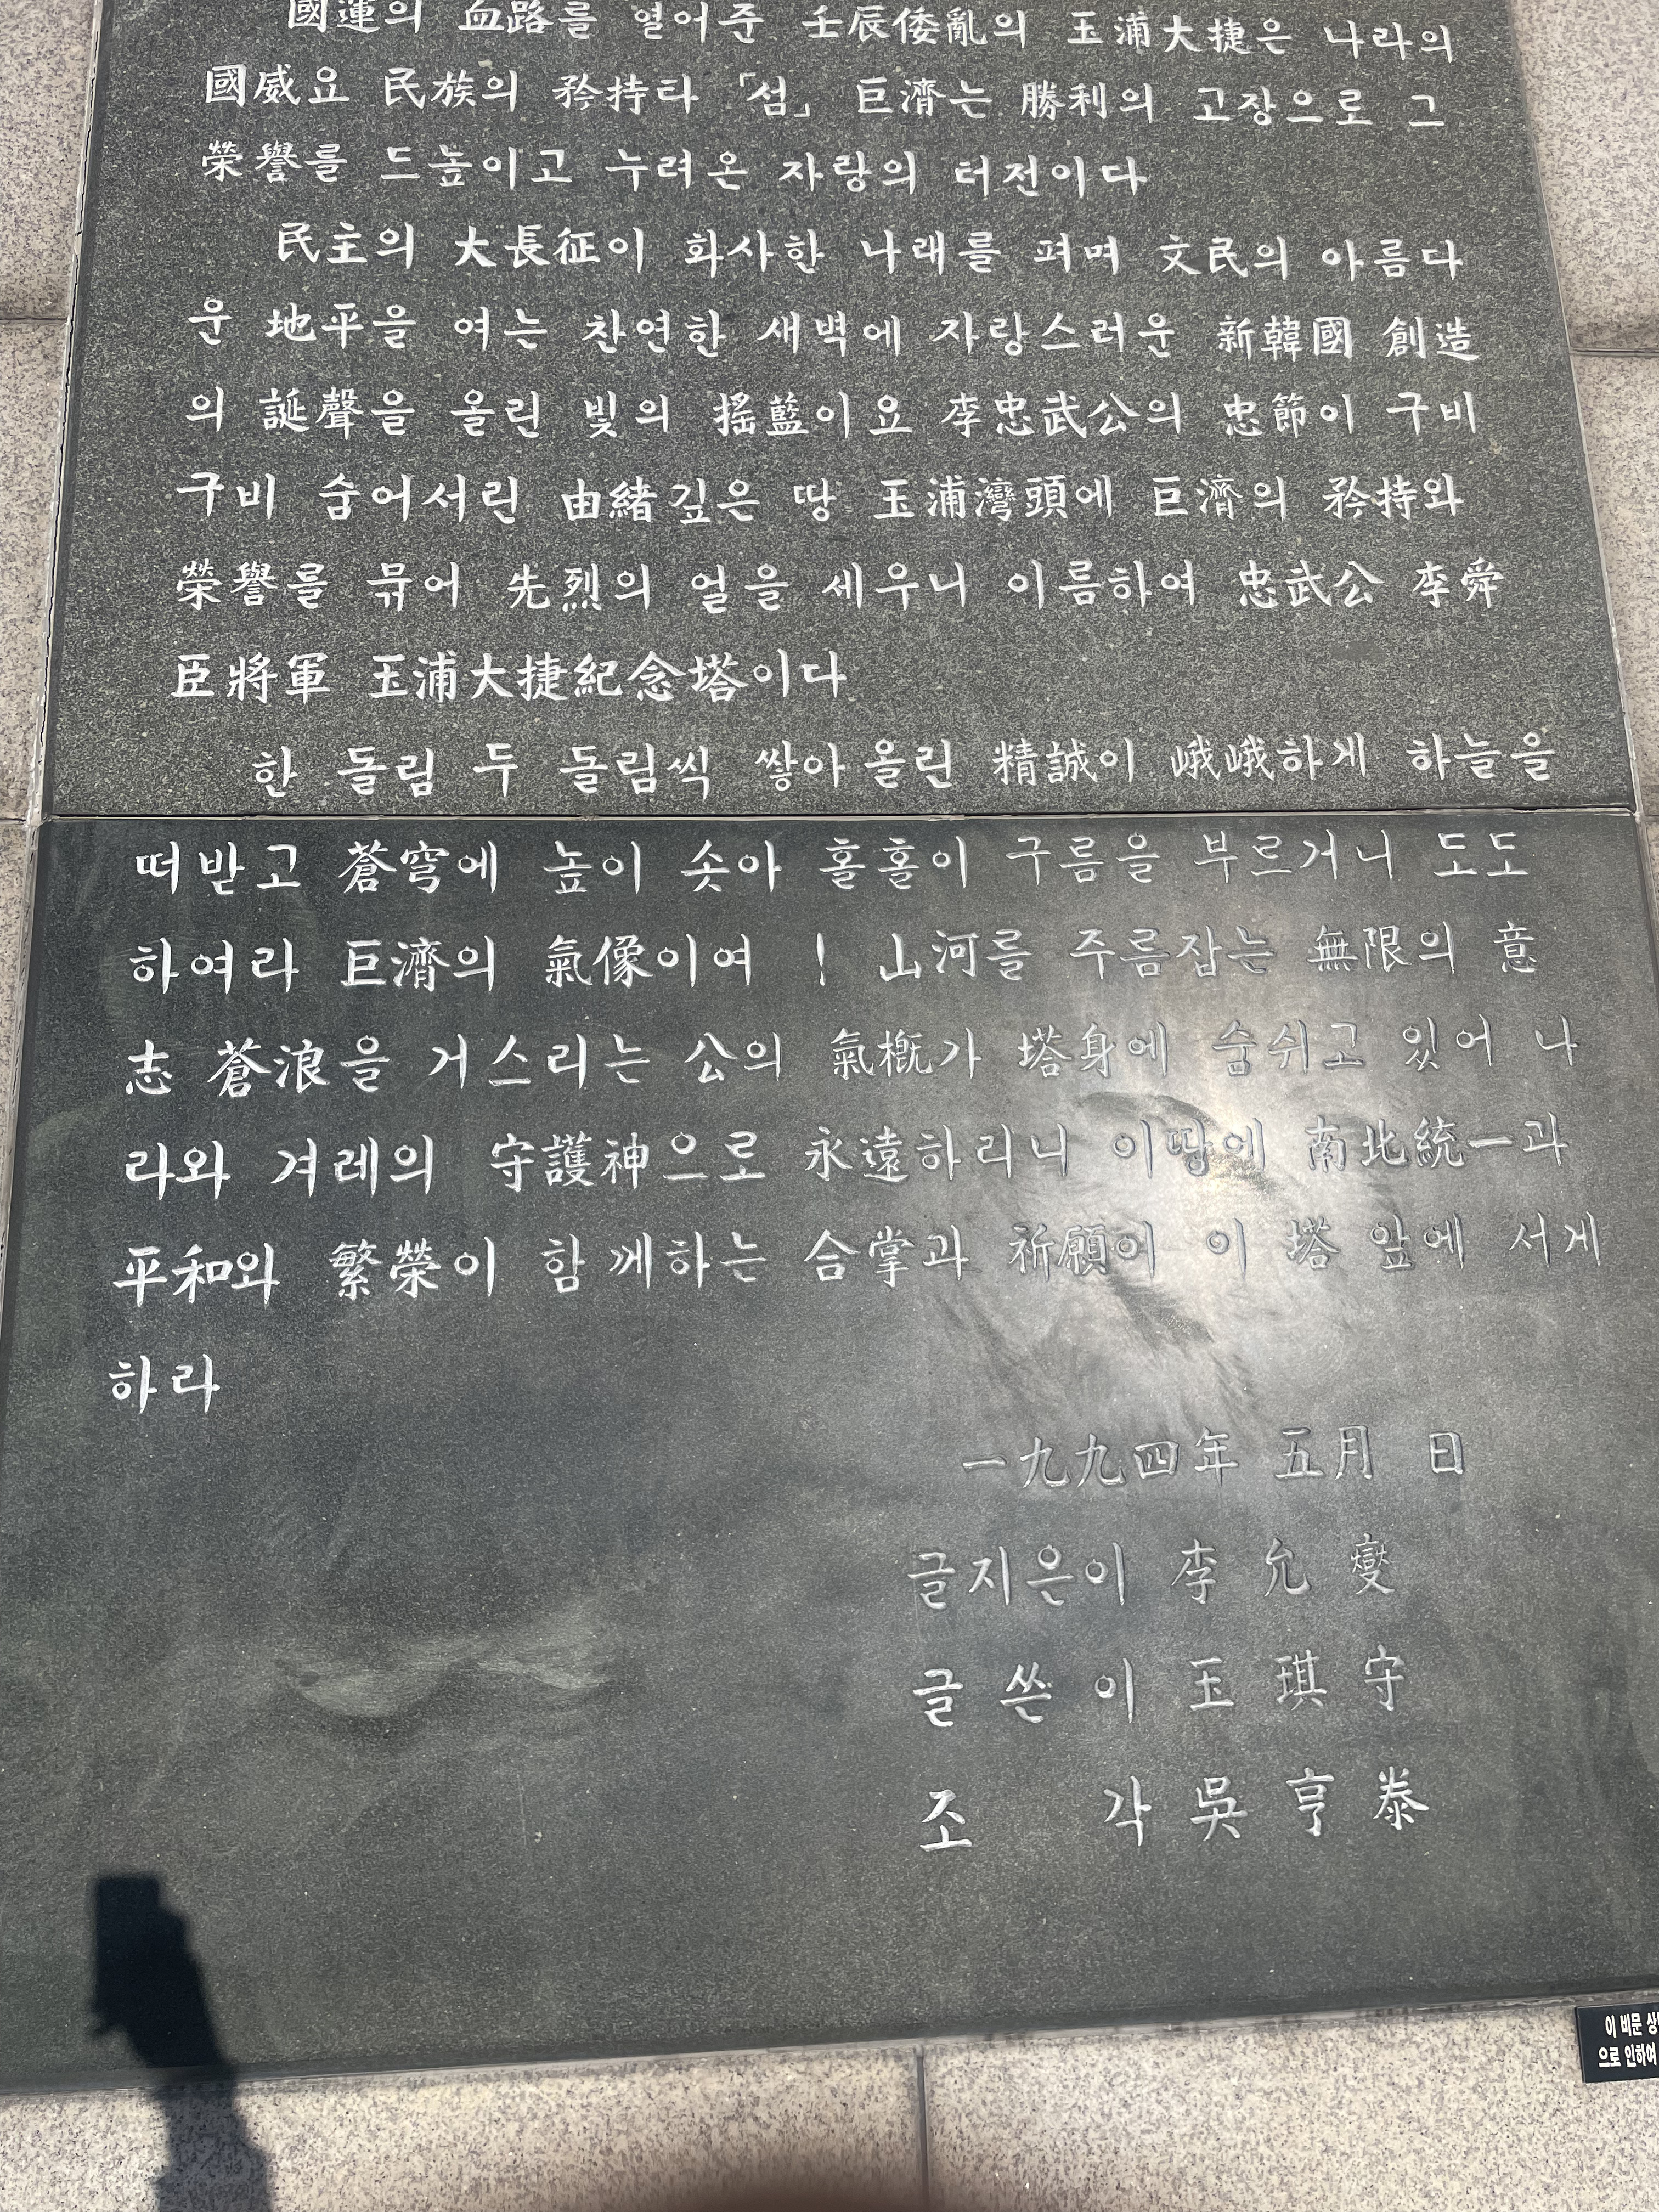 國運의 血路를 열어준 壬辰倭亂의 玉浦大捷은 나라의
國威요 民族의 矜持라 「섬」 巨濟는 勝利의 고장으로 그
榮譽를 드높이고 누려온 자랑의 터전이다
民主의 大長征이 화사한 나래를 펴며 文民의 아름다
운 地平을 여는 찬연한 새벽에 자랑스러운 新韓國 創造
의 誕聲을 올린 빛의 搖藍이요 李忠武公의 忠節이 구비
구비 숨어서린 由緖깊은 땅 玉浦灣頭에 巨濟의 矜持와
榮譽를 묶어 先烈의 얼을 세우니 이름하여 忠武公 李舜
臣將軍 玉浦大捷紀念塔이다
한 돌림 두 돌림씩 쌓아올린 精誠이 峨峨하게 하늘을
떠받고 蒼穹에 높이 솟아 홀홀이 구름을 부르거니 도도
하여라 巨濟의 氣像이여 ! 山河를 주름잡는 無限의 意
志 蒼浪을 거스리는 公의 氣槪가 塔身에 숨쉬고 있어 나
라와 겨레의 守護神으로 永遠하리니 이땅에 南北統一과
平和와 繁榮이 함께하는 合掌과 祈願이 이 塔 앞에 서게
하라
一九九四年 五月 日
글지은이 李允燮
글쓴이 玉琪守
조 각 吳亨泰
이 비문 상
으로 인하여